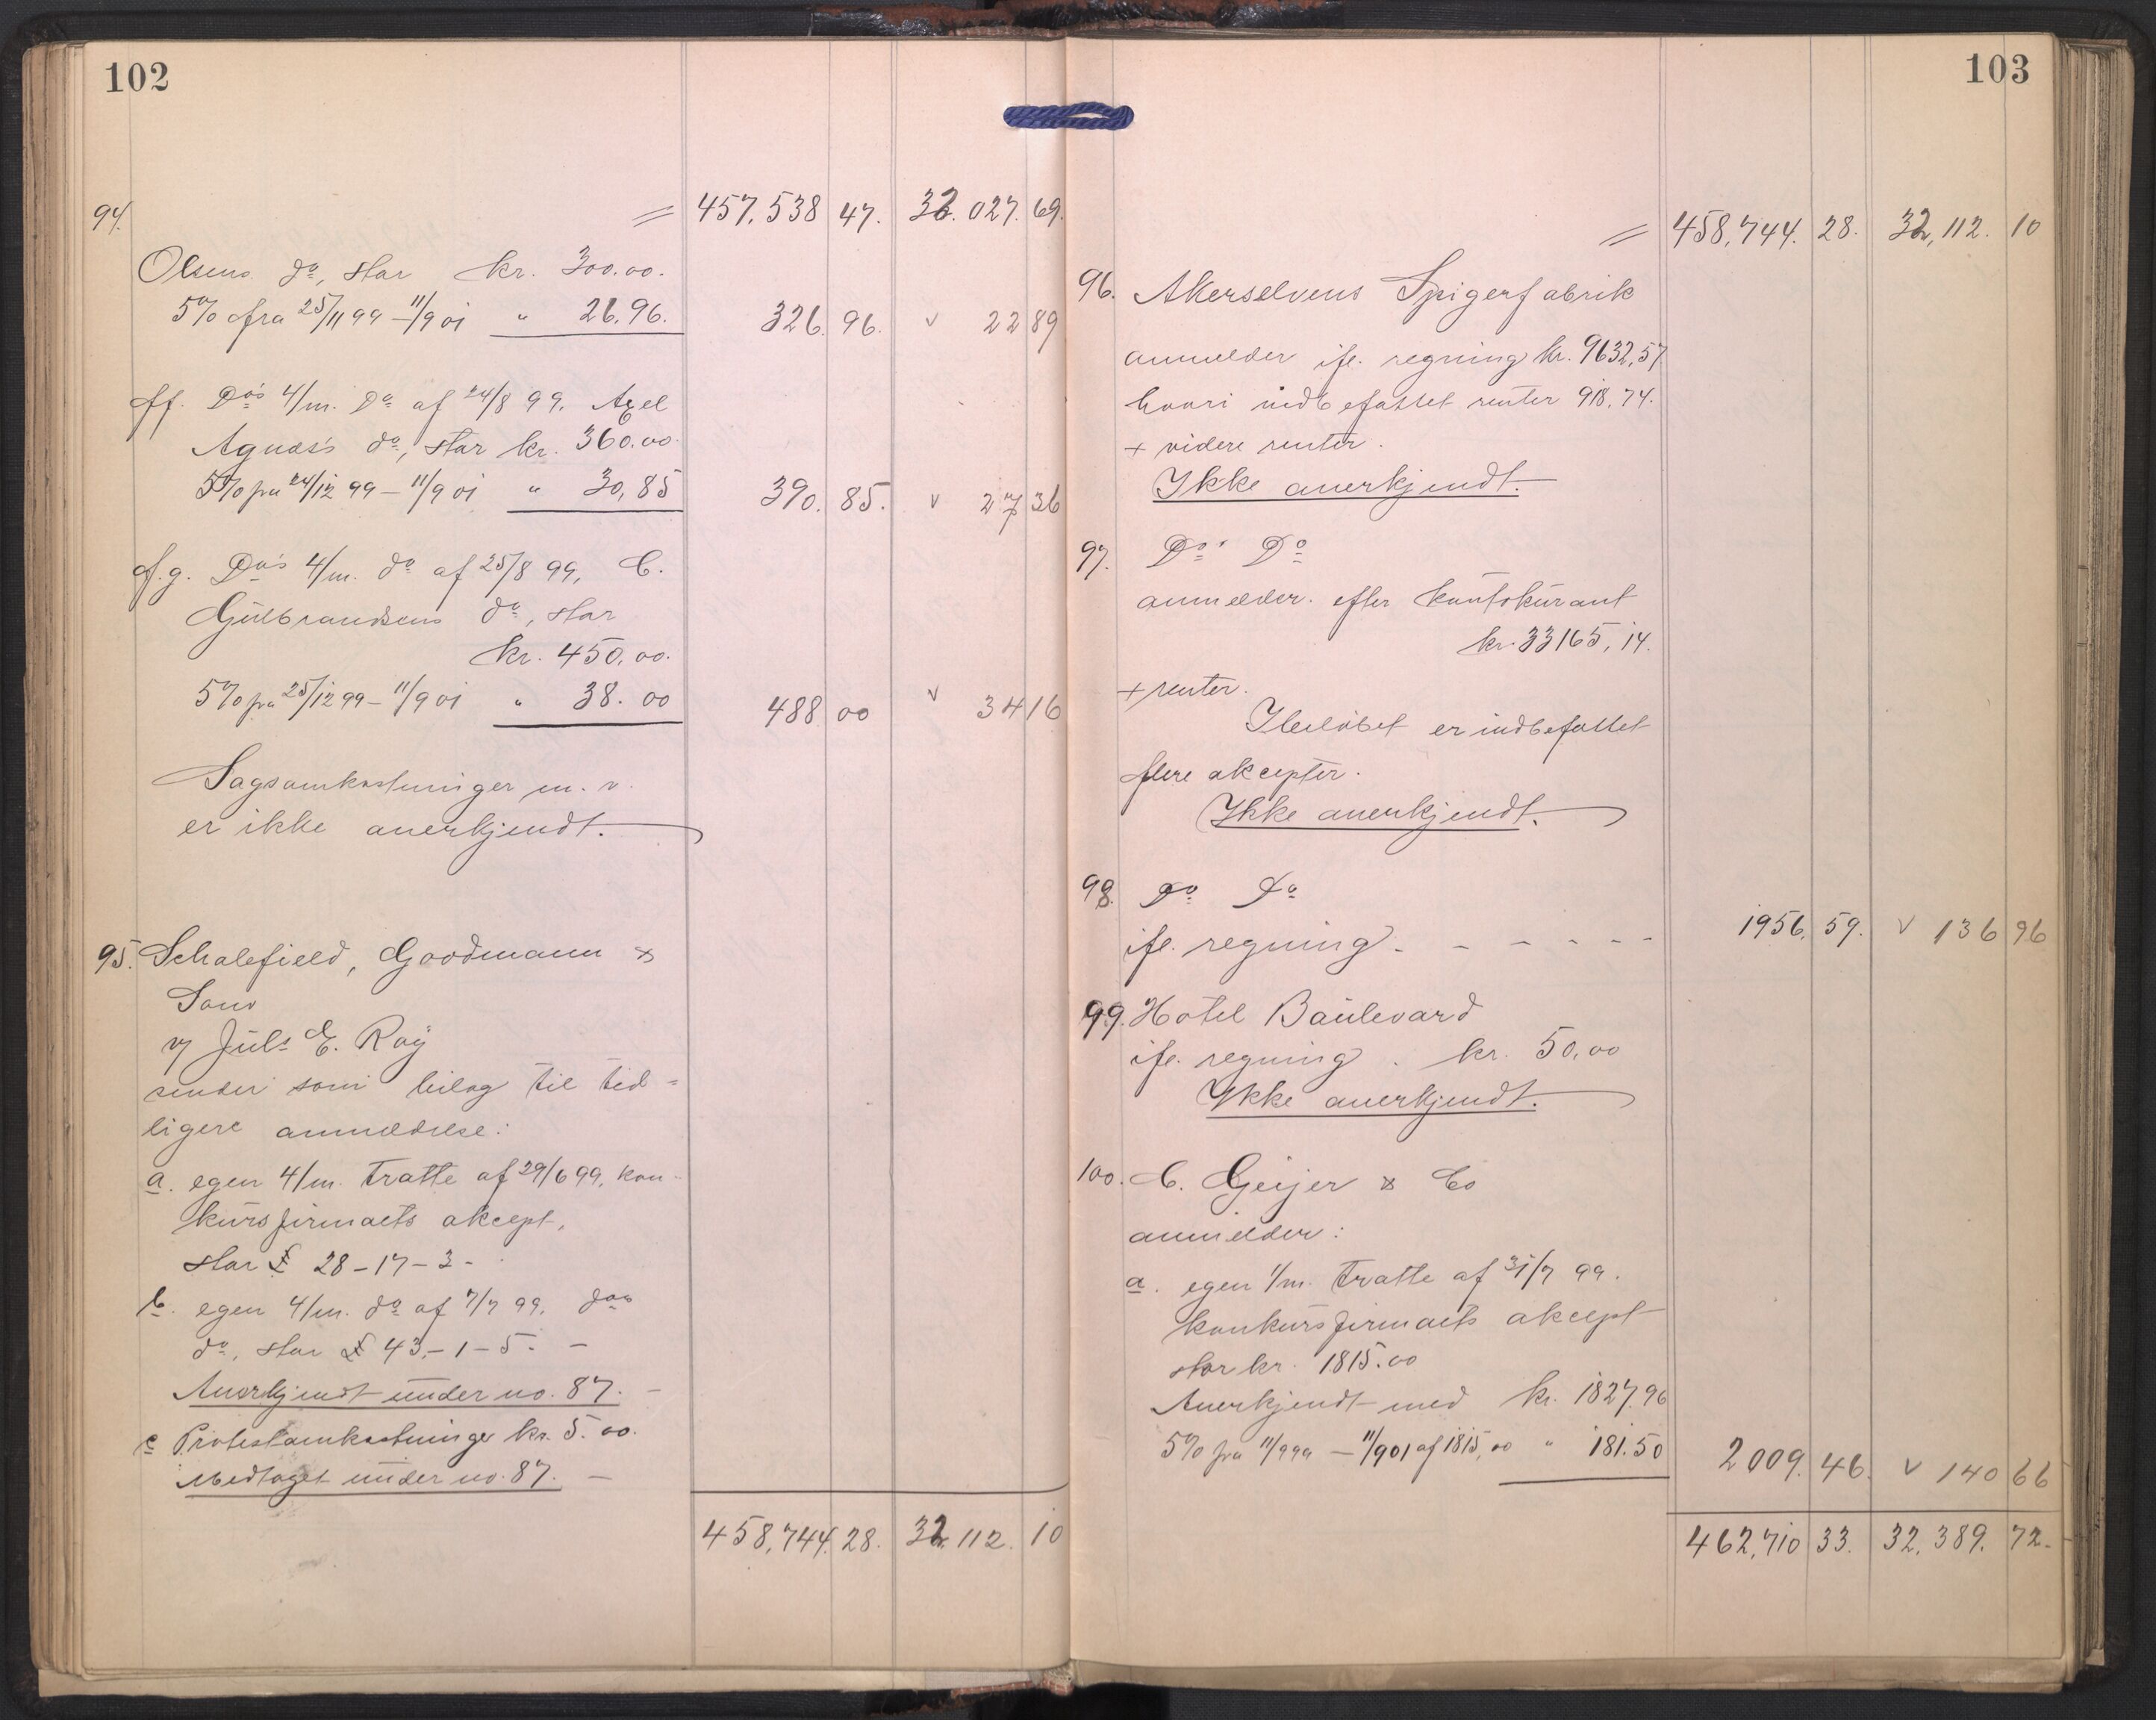 102
94. = 457,538 47. 32.027. 69.
Olsens do, stor kr. 300.00.
5% fra 25/11 99 – 11/9 01 " 26.96. 326. 96. v 22 89
ff. Do's 4/m. Do af 24/8 99. Axel
Agnæs's do, stor kr. 360.00.
5% fra 24/12 99 – 11/9 01 " 30,85 390. 85. v 27 36
f.g. Do's 4/m. do af 25/8 99, C.
Gulbrandsens do, stor
kr. 450.00.
5% fra 25/12 99 – 11/9 01 " 38.00 488 00 v 34 16
Sagsomkostninger m. v.
er ikke anerkjendt.
95. Scholefield, Goodmann &
Sons
v/ Juls E. Roy
sender som bilag til tid=
ligere anmeldelse:
a. egen 4/m. tratte af 29/6 99, kon-
kursfirmaets akcept,
stor £ 28–17–3–
b. egen 4/m. do af 7/7 99. dos
do, stor £ 43,–1–5. –
Anerkjendt under no. 87. –
c Protestomkostninger kr. 5.00.
Medtaget under no. 87. –
458,744. 28. 32.112. 10
103
= 458,744. 28. 32,112. 10
96. Akerselvens Spigerfabrik
anmelder ifl. regning kr. 9632,57
hvori indbefattet renter 918.74.
+ videre renter.
Ikke anerkjendt.
97. Do. Do
anmelder efter kontokurant
kr. 33165,14.
+ renter.
I beløbet er indbefattet
flere akcepter.
Ikke anerkjendt.
98. Do Do
ifl. regning. – – – – – 1956. 59. v 136 96
99. Hotel Boulevard
ifl. regning . kr. 50,00
Ikke anerkjendt.
100. C. Geijer & Co
anmelder:
a. egen 1/m. tratte af 31/7 99.
konkursfirmaets akcept
stor kr. 1815.00
Anerkjendt med kr. 1827.96
5% fra 11/9 99 – 11/9 01 af 1815,00 " 181.50 2009. 46. v 140 66
462,710 33. 32,389. 72.